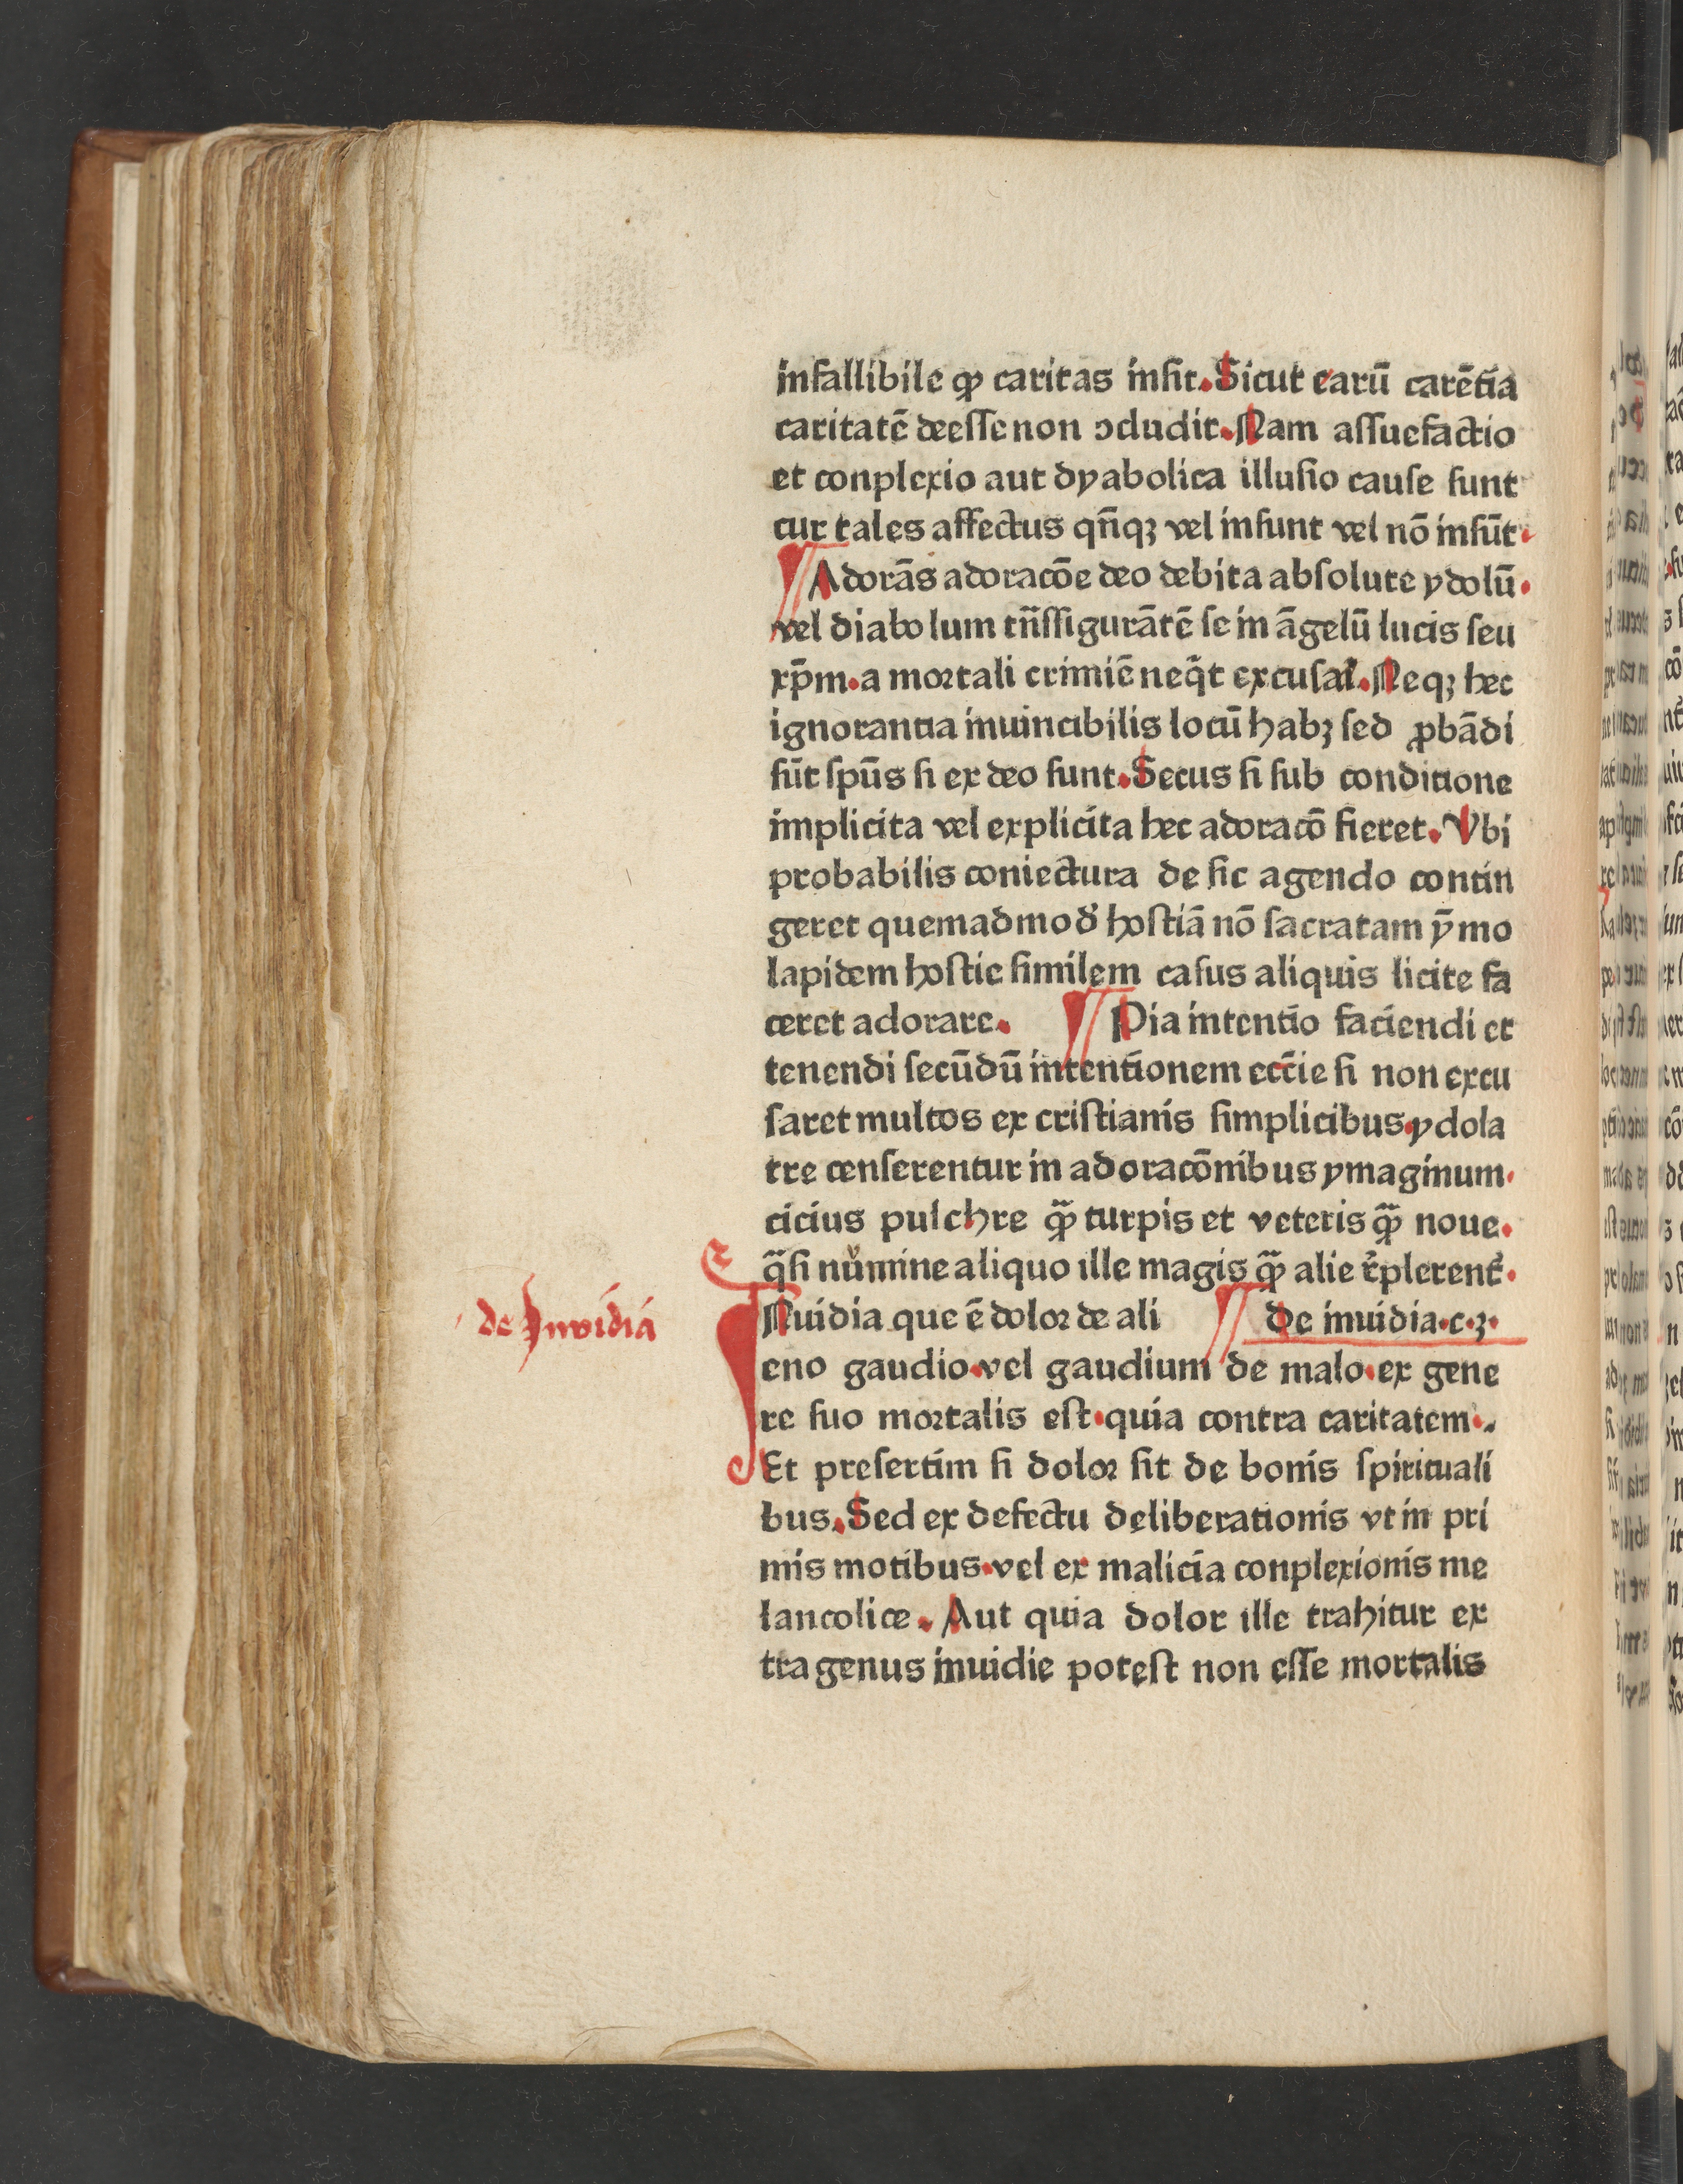 infallibile ꝙ caritas insit. Sicut earū carētia
caritatē deesse non ɔcludit. Nam assuefactio
et conplexio aut dyabolica illusio cause sunt
cur tales affectus qn̄qꝫ vel insunt vel nō insūt.
¶ Adorās adoracōe deo debita absolute ydolū.
vel diabolum trn̄sfigurātē se in āgelū lucis seu
xp̄m. a mortali crimiē neq̄t excusari. Neqꝫ hec
ignorantia inuincibilis locū habꝫ sed ꝓbādi
sūt spūs si ex deo sunt. Secus si sub conditione
implicita vel explicita hec adoracō fieret. Vbi
probabilis coniectura de sic agendo contin
geret quemadmodꝰ hostiā nō sacratam ȳmo
lapidem hostie similem casus aliquis licite fa
ceret adorare. ¶ Pia intentio faciendi et
tenendi secūdū intentionem ecc̄ie si non excu
saret multos ex cristianis simplicibus. ydola
tre censerentur in adoracōnibus ymaginum.
cicius pulchre qꝫ̄ turpis et veteris qꝫ̄ noue.
q̄si numine aliquo ille magis qꝫ̄ alie r̄plerent̄.
de Inuidia
INuidia que ē dolor de ali ¶ De inuidia. c. 3.
eno gaudio. vel gaudium de malo. ex gene
re suo mortalis est. quia contra caritatem.
Et presertim si dolor sit de bonis spirituali
bus. Sed ex defectu deliberationis vt in pri
mis motibus. vel ex malicia conplexionis me
lancolice. Aut quia dolor ille trahitur ex
tra genus inuidie potest non esse mortalis